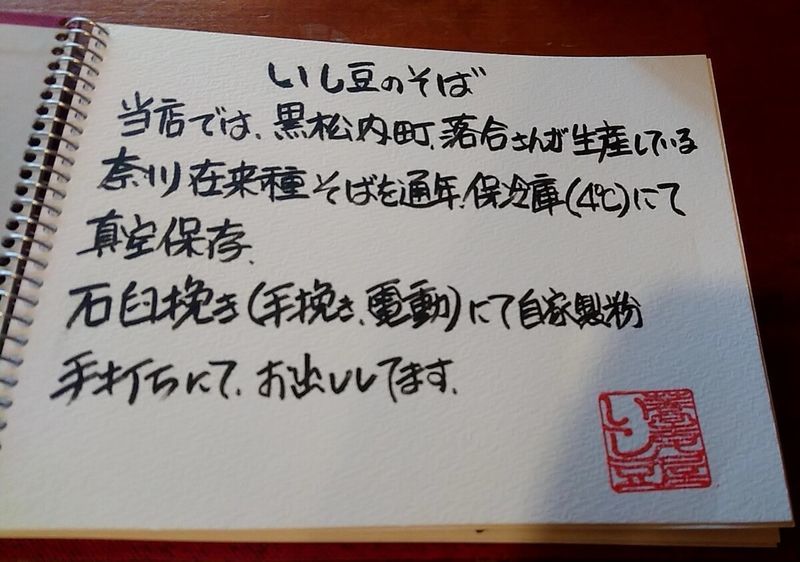 いし豆のそば
当店では、黒松内町、落合さんが生産している
奈川在来種そばを通年、保冷庫(4℃)にて
真空保存、
石臼挽き(手挽き、電動)にて自家製粉
手打ちにて、お出ししてます。
いし豆